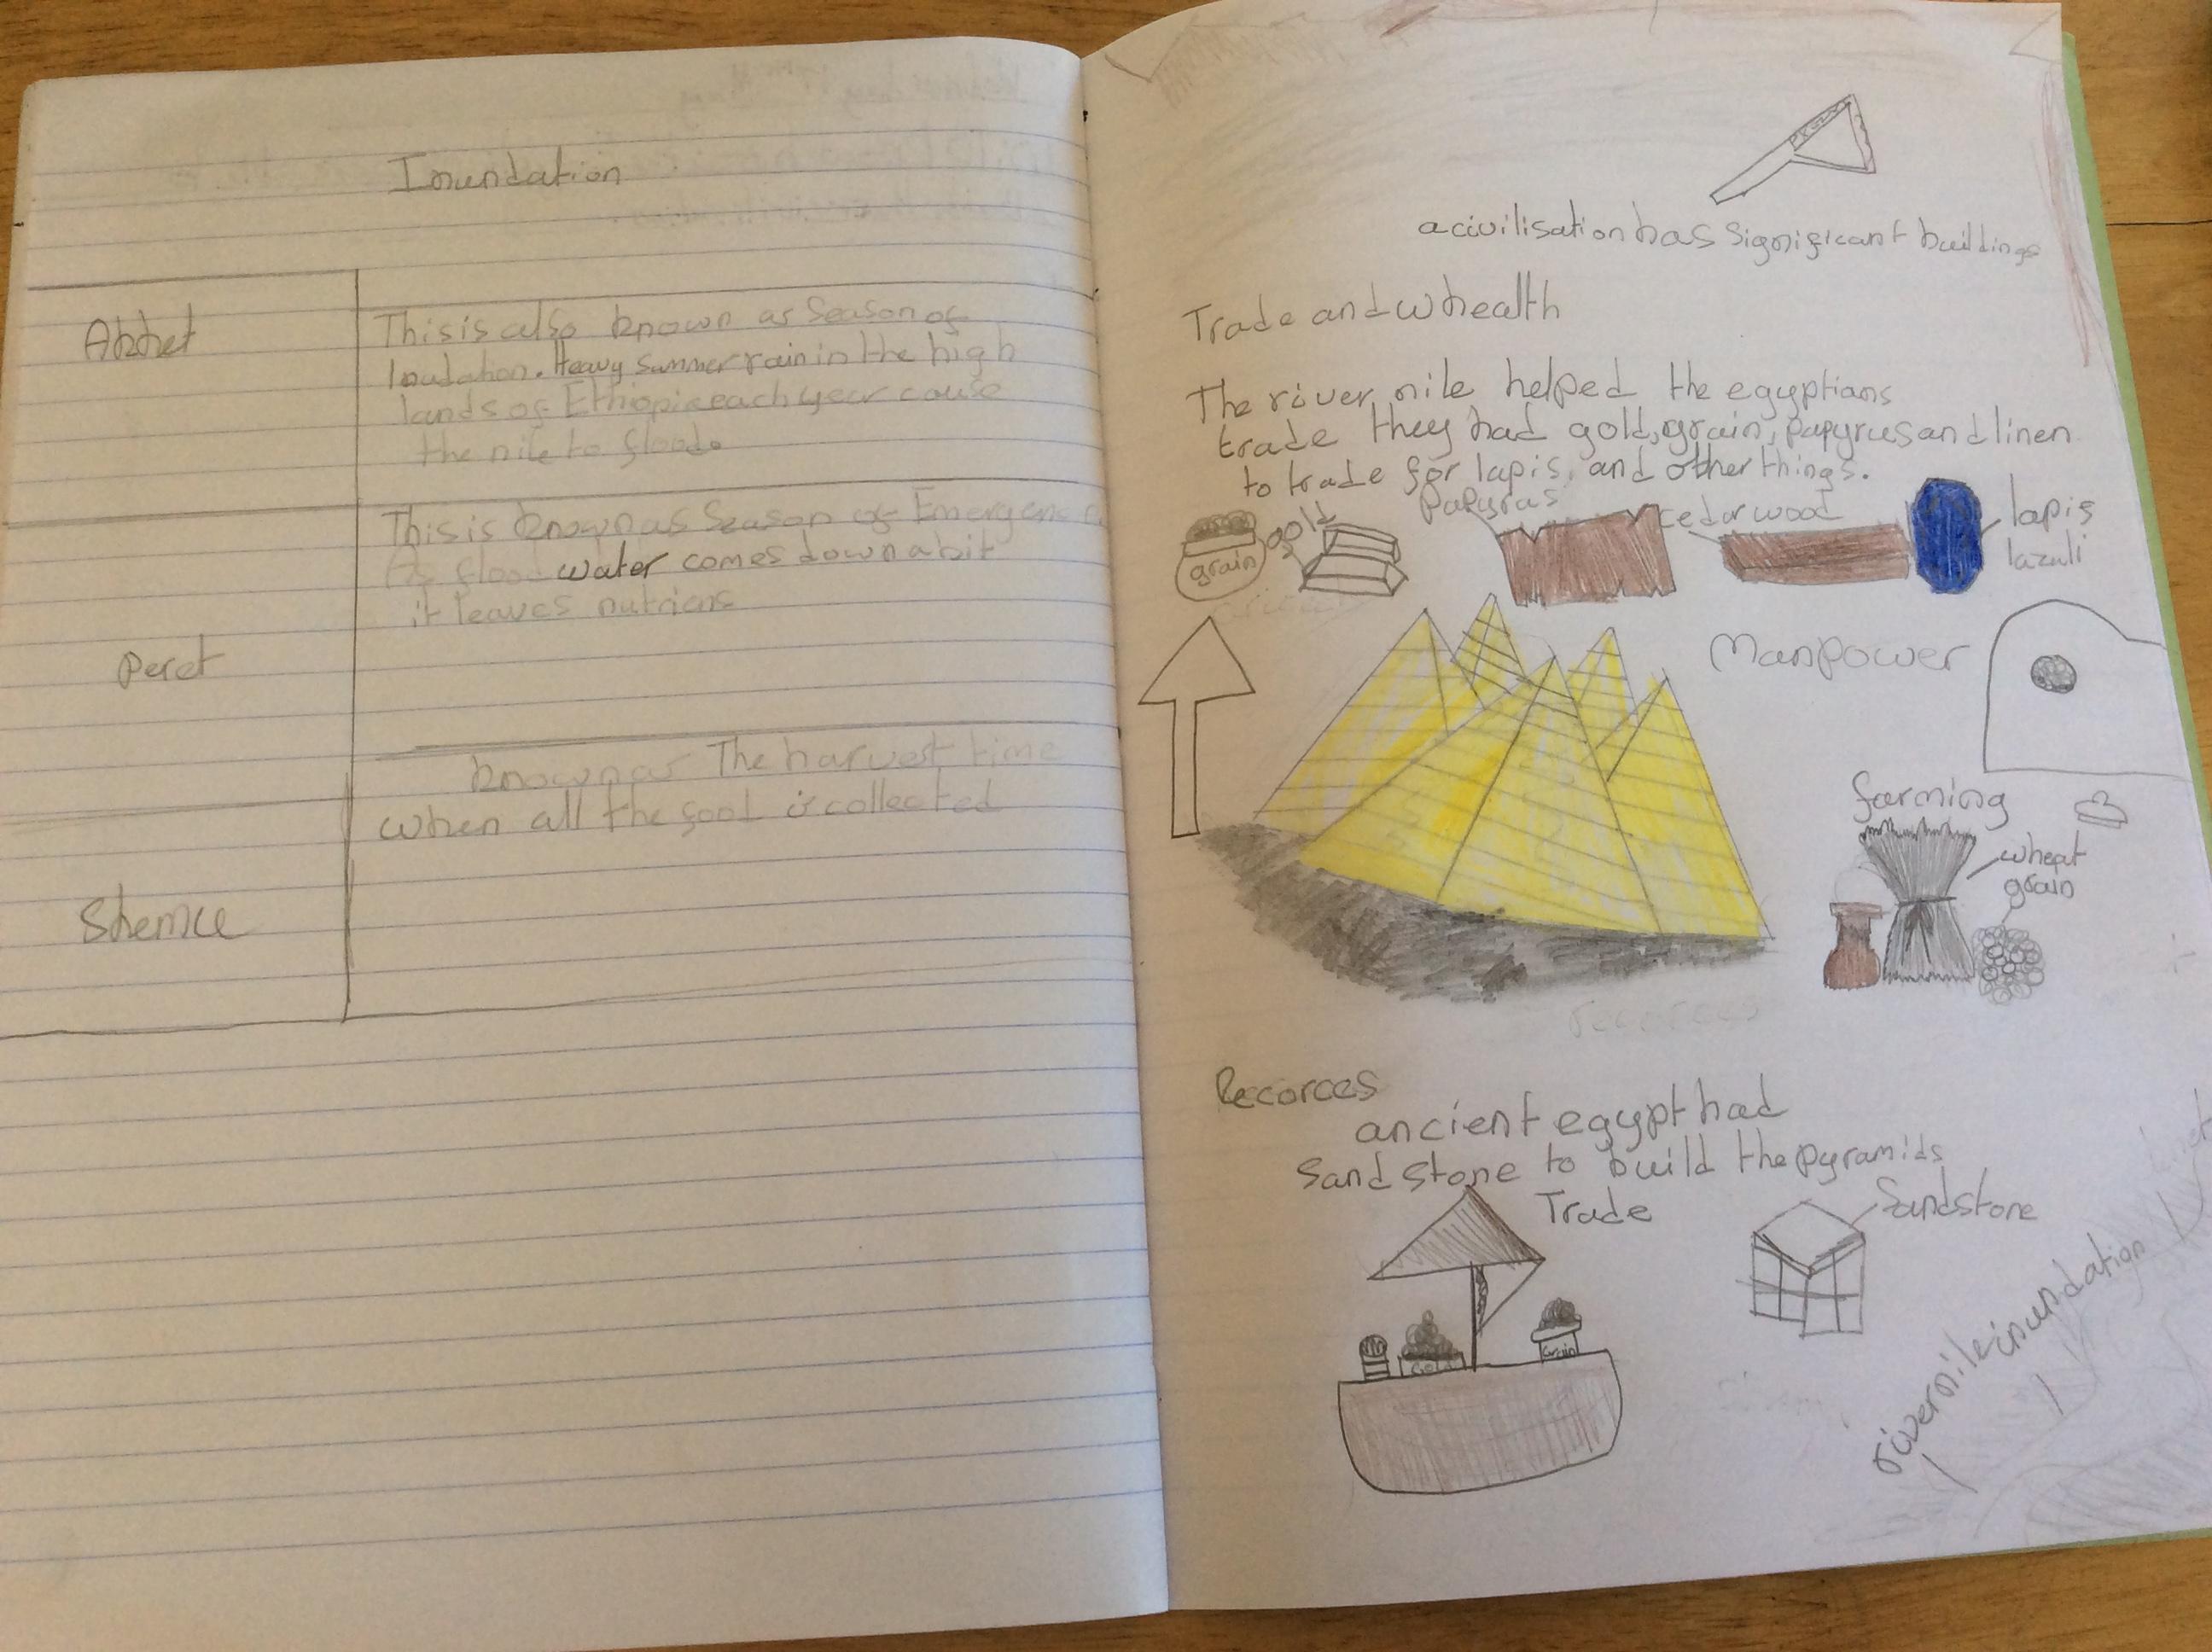 Inundation
Ahket
This is also known as Season of
Inudation. Heavy summer rain in the high
lands of Ethiopia each year cause
the nile to flood.
Peret
This is known as Season of Emergence
As flood water comes down a bit
it leaves nutriens
Shemue
known as The harvest time
when all the food is collected
a civilisation has significant buildings
Trade and whealth
The river nile helped the egyptians
trade they had gold, grain, papyrus and linen
to trade for lapis, and other things.
grain
gold
Papyras
cedar wood
lapis
lazuli
Manpower
farming
wheat
grain
recorces
Recorces
ancient egypt had
sand stone to build the pyramids
Trade
Sandstone
Gold
Grain
river nile inundation